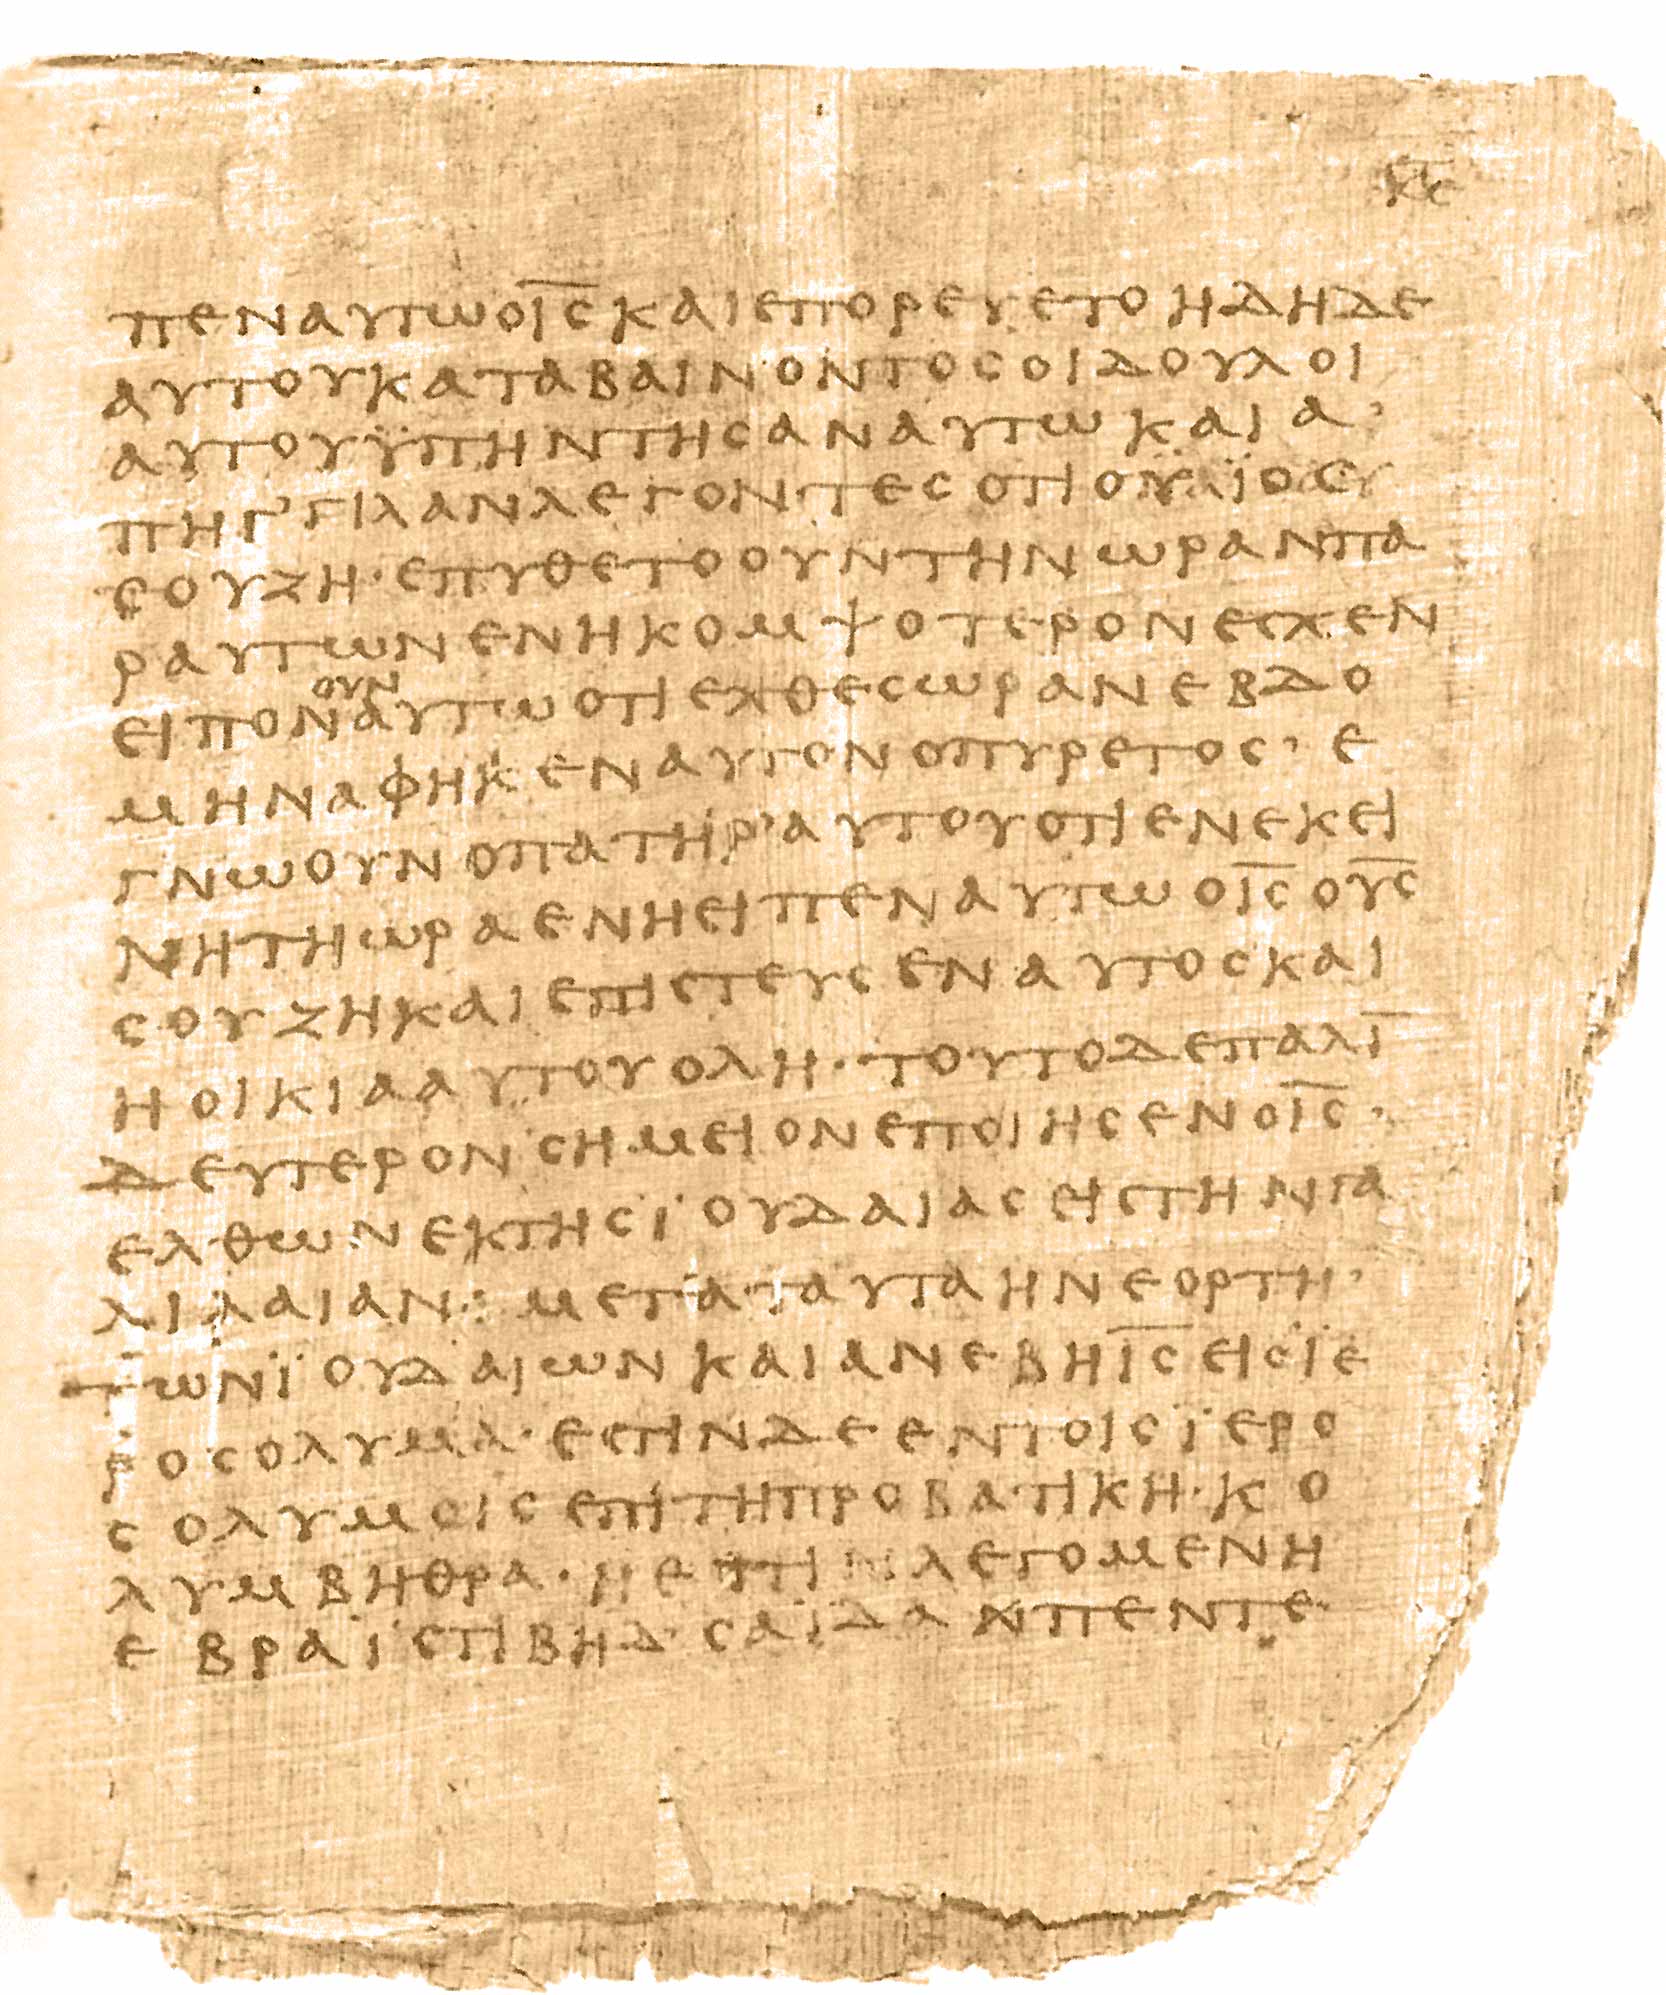 ΠΕΝΑΥΤΩΟΙ̅Ϲ̅ΚΑΙΕΠΟΡΕΥΕΤΟΗΔΗΔΕ
ΑΥΤΟΥΚΑΤΑΒΑΙΝΟΝΤΟϹΟΙΔΟΥΛΟΙ
ΑΥΤΟΥΫΠΗΝΤΗϹΑΝΑΥΤΩΚΑΙΑ᾿
ΠΗΓ᾿ΓΙΛΑΝΛΕΓΟΝΤΕϹΟΤΙΟ
ϹΟΥΖΗ·ΕΠΥΘΕΤΟΟΥΝΤΗΝΩΡΑΝΠΑ
ΡΑΥΤΩΝΕΝΗΚΟΜΨΟΤΕΡΟΝΕϹΧΕΝ
ΕΙΠΟΝ\ΟΥΝ/ΑΥΤΩΟΤΙΕΧΘΕϹΩΡΑΝΕΒΔΟ
ΜΗΝΑΦΗΚΕΝΑΥΤΟΝΟΠΥΡΕΤΟϹ᾿Ε
ΓΝΩΟΥΝΟΠΑΤΗΡ᾿ΑΥΤΟΥΟΤΙΕΝΕΚΕΙ
ΝΗΤΗΩΡΑΕΝΗΕΙΠΕΝΑΥΤΩΟΙ̅Ϲ̅ΟΥ̅Ϲ̅
ϹΟΥΖΗΚΑΙΕΠΙϹΤΕΥϹΕΝΑΥΤΟϹΚΑΙ
ΗΟΙΚΙΑΑΥΤΟΥΟΛΗ·ΤΟΥΤΟΔΕΠΑΛΙ̅
ΔΕΥΤΕΡΟΝϹΗΜΕΙΟΝΕΠΟΙΗϹΕΝΟΙ̅Ϲ̅·
ΕΛΘΩΝΕΚΤΗϹΪΟΥΔΑΙΑϹΕΙϹΤΗΝΓΑ
ΛΙΛΑΙΑΝ:ΜΕΤΑΤΑΥΤΑΗΝΕΟΡΤΗ᾿
ΤΩΝΪΟΥΔΑΙΩΝΚΑΙΑΝΕΒΗΙ̅Ϲ̅ΕΙϹΪΕ
ΡΟϹΟΛΥΜΑ·ΕϹΤΙΝΔΕΕΝΤΟΙϹΪΕΡΟ
ϹΟΛΥΜΟΙϹΕΠΙΤΗΠΡΟΒΑΤΙΚΗ·ΚΟ
ΛΥΜΒΗΘΡΑ·ΛΕΓΟΜΕΝΗ
ΕΒΡΑΪϹΤΙΒΗΔ᾿ϹΑΪΔΑΝΠΕΝΤΕ